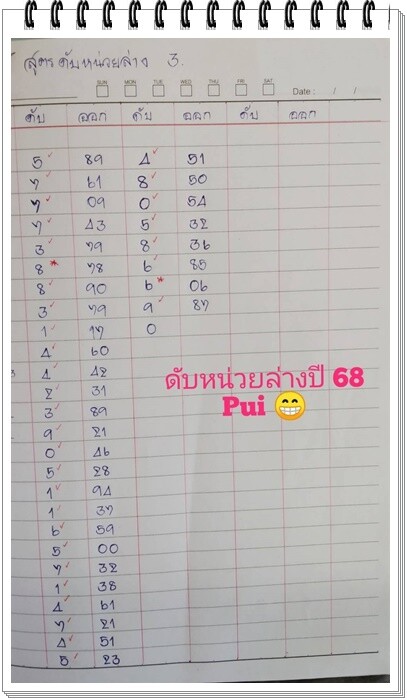 สูตรดับหน่วยล่าง 3.
SUN MON TUE WED THU FRI SAT
Date : / /
ดับ ออก ดับ ออก ดับ ออก
5 89 4 51
7 61 8 50
7 09 0 54
7 43 5 32
3 79 8 36
8 78 6 85
8 90 6 06
3 79 9 87
1 17 0
4 60
1 42
2 31
3 89
9 21
0 46
5 28
1 94
1 37
6 59
5 00
7 32
1 38
4 61
7 21
4 51
5 23
ดับหน่วยล่างปี 68
Pui 😁